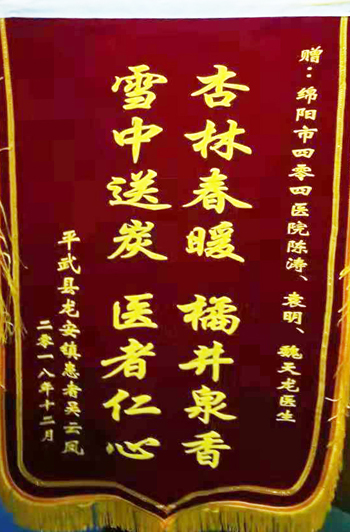 赠：绵阳市四零四医院陈涛、袁明、魏天龙医生
杏林春暖 橘井泉香
雪中送炭 医者仁心
平武县龙安镇患者吴云凤
二零一八年十二月